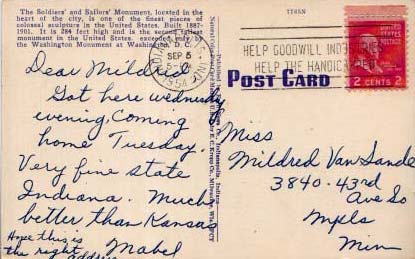 The Soldiers' and Sailors' Monument, located in the
heart of the city, is one of the finest pieces of
colossal sculpture in the United States. Built 1887-
1901. It is 284 feet high and is the second tallest
monument in the United States, exceeded only by
the Washington Monument at Washington, D. C.
1785N
SEP 5
1954
IND.
HELP GOODWILL INDUSTRIES
HELP THE HANDICAPPED
2 CENTS 2
POST CARD
Dear Mildred
Got here wednesday
evening. Coming
home Tuesday.
Very fine state
Indiana. Much
better than Kansas
Mabel
Hope this is
the right address
Miss
Mildred Van Sande
3840-43rd
Ave So
Mpls
Minn